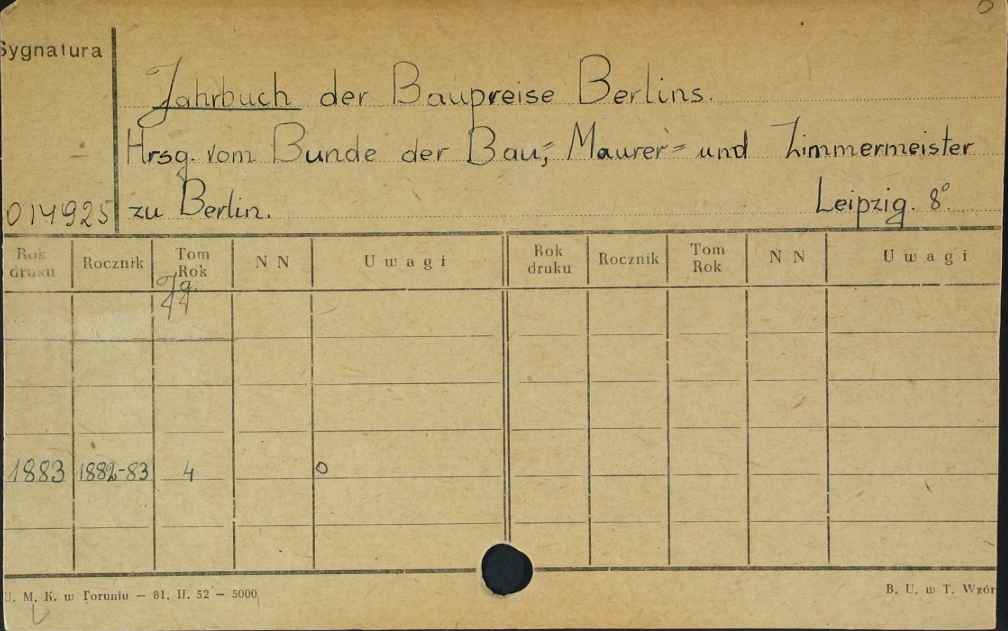 Sygnatura
Jahrbuch der Baupreise Berlins.
Hrsg. vom Bunde der Bau-, Maurer- und Zimmermeister
014925 zu Berlin. Leipzig. 8°
Rok druku Rocznik Tom Rok N N Uwagi Rok druku Rocznik Tom Rok N N Uwagi
Jg.
1883 1882-83 4 o
U. M. K. w Toruniu — 81. II. 52 — 5000 B. U. w T. Wzór